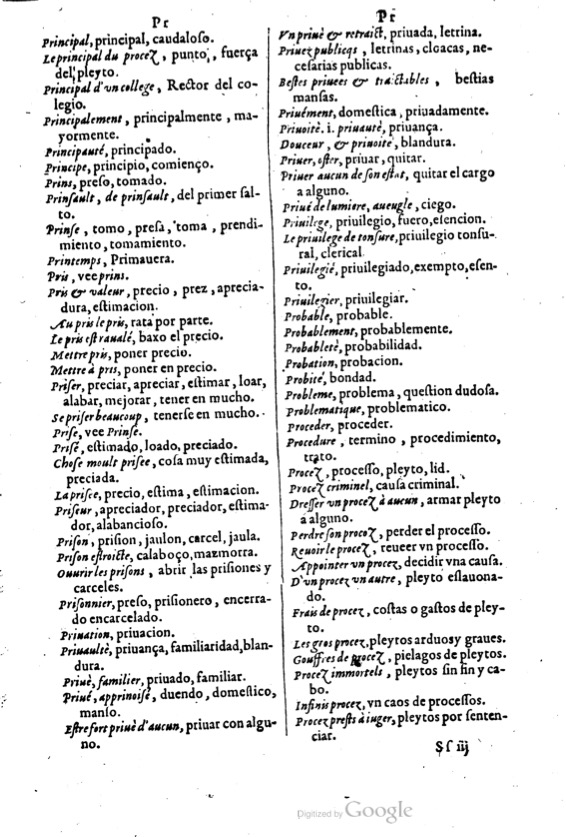 Pr
Principal, principal, caudaloso.
Le principal du procez, punto, fuerça
del pleyto.
Principal d'vn college, Rector del co-
legio.
Principalement, principalmente, ma-
yormente.
Principauté, principado.
Principe, principio, comienço.
Prins, preso, tomado.
Prinsault, de prinsault, del primer sal-
to.
Prinse, tomo, presa, toma, prendi-
miento, tomamiento.
Printemps, Primauera.
Pris, vee prins.
Pris & valeur, precio, prez, aprecia-
dura, estimacion.
Au pris le pris, rata por parte.
Le pris est raualé, baxo el precio.
Mettre pris, poner precio.
Mettre à pris, poner en precio.
Priser, preciar, apreciar, estimar, loar,
alabar, mejorar, tener en mucho.
Se priser beaucoup, tenerse en mucho.
Prise, vee Prinse.
Prisé, estimado, loado, preciado.
Chose moult prisee, cosa muy estimada,
preciada.
La prisee, precio, estima, estimacion.
Priseur, apreciador, preciador, estima-
dor, alabancioso.
Prison, prision, jaulon, carcel, jaula.
Prison estroicte, calaboço, mazmorra.
Ouurir les prisons, abrir las prisiones y
carceles.
Prisonnier, preso, prisionero, encerra-
do encarcelado.
Priuation, priuacion.
Priuaultè, priuança, familiaridad, blan-
dura.
Priuè, familier, priuado, familiar.
Priué, apprinoisé, duendo, domestico,
manso.
Estre fort priuè d'aucun, priuar con algu-
no.
Pr
Vn priuè & retraict, priuada, letrina.
Priuez publicqs, letrinas, cloacas, ne-
cesarias publicas.
Bestes priuees & traictables, bestias
mansas.
Priuément, domestica, priuadamente.
Priuoité. i. priuauté, priuança.
Douceur, & priuoité, blandura.
Priuer, oster, priuar, quitar.
Priuer aucun de son estat, quitar el cargo
a alguno.
Priué de lumiere, aueugle, ciego.
Priuilege, priuilegio, fuero, esencion.
Le priuilege de tonsure, priuilegio tonsu-
ral, clerical.
Priuilegié, priuilegiado, exempto, esen-
to.
Priuilegier, priuilegiar.
Probable, probable.
Probablement, probablemente.
Probableté, probabilidad.
Probation, probacion.
Probité, bondad.
Probleme, problema, question dudosa.
Problematique, problematico.
Proceder, proceder.
Procedure, termino, procedimiento,
trato.
Procez, processo, pleyto, lid.
Procez criminel, causa criminal.
Dresser vn procez à aucun, armar pleyto
a alguno.
Perdre son procez, perder el processo.
Reuoir le procez, reueer vn processo.
Appointer vn procez, decidir vna causa.
D'vn procez vn autre, pleyto eslauona-
do.
Frais de procez, costas o gastos de pley-
to.
Les gros procez, pleytos arduos y graues.
Gouffres de procez, pielagos de pleytos.
Procez immortels, pleytos sin fin y ca-
bo.
Infinis procez, vn caos de processos.
Procez prests à iuger, pleytos por senten-
ciar.
Sſ iij
Digitized by Google